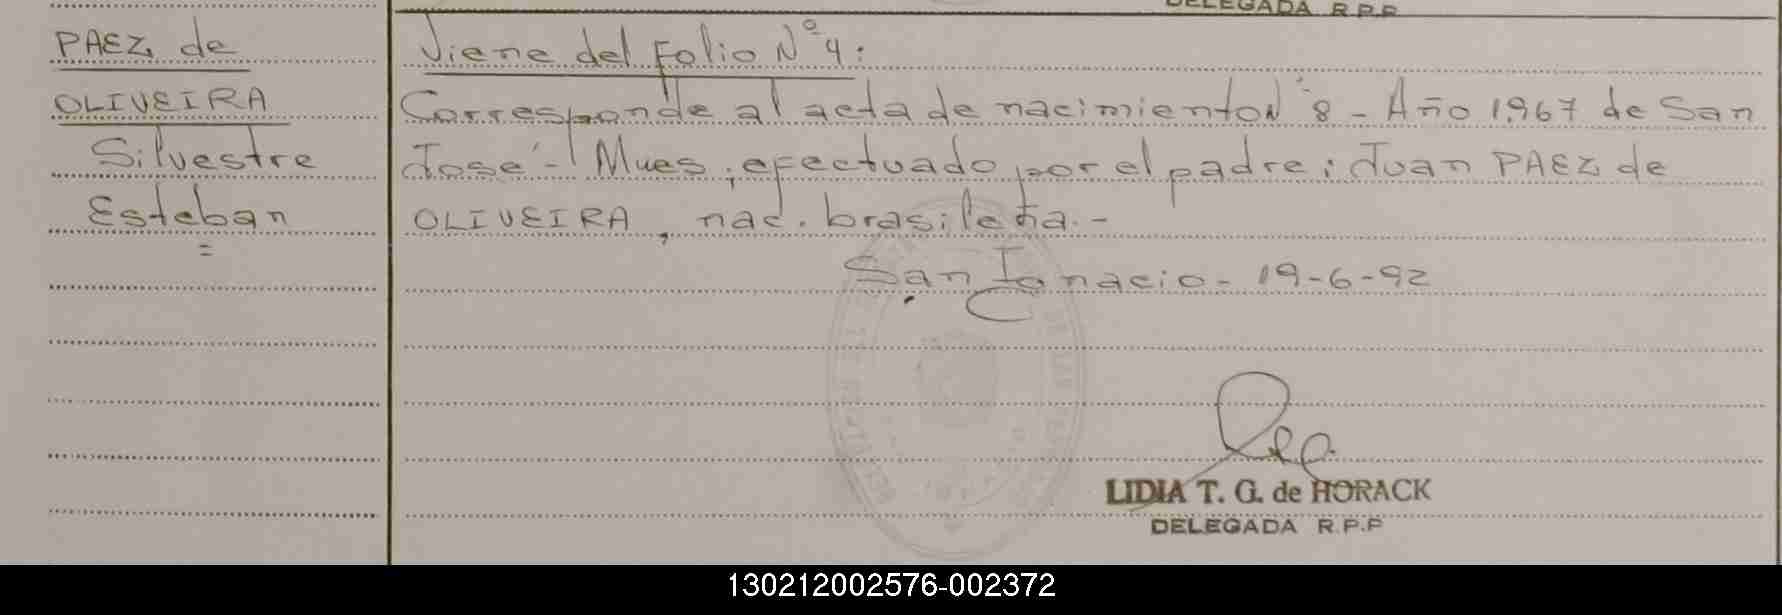 DELEGADA R.P.P
PAEZ de
OLIVEIRA
Silvestre
Esteban
=
Viene del Folio Nº 4:
Corresponde al acta de nacimiento Nº 8 - Año 1.967 de San
José - Mnes, efectuado por el padre: Juan PAEZ de
OLIVEIRA, nac. brasileña.-
San Ignacio - 19-6-92
LIDIA T. G. de HORACK
DELEGADA R.P.P
130212002576-002372